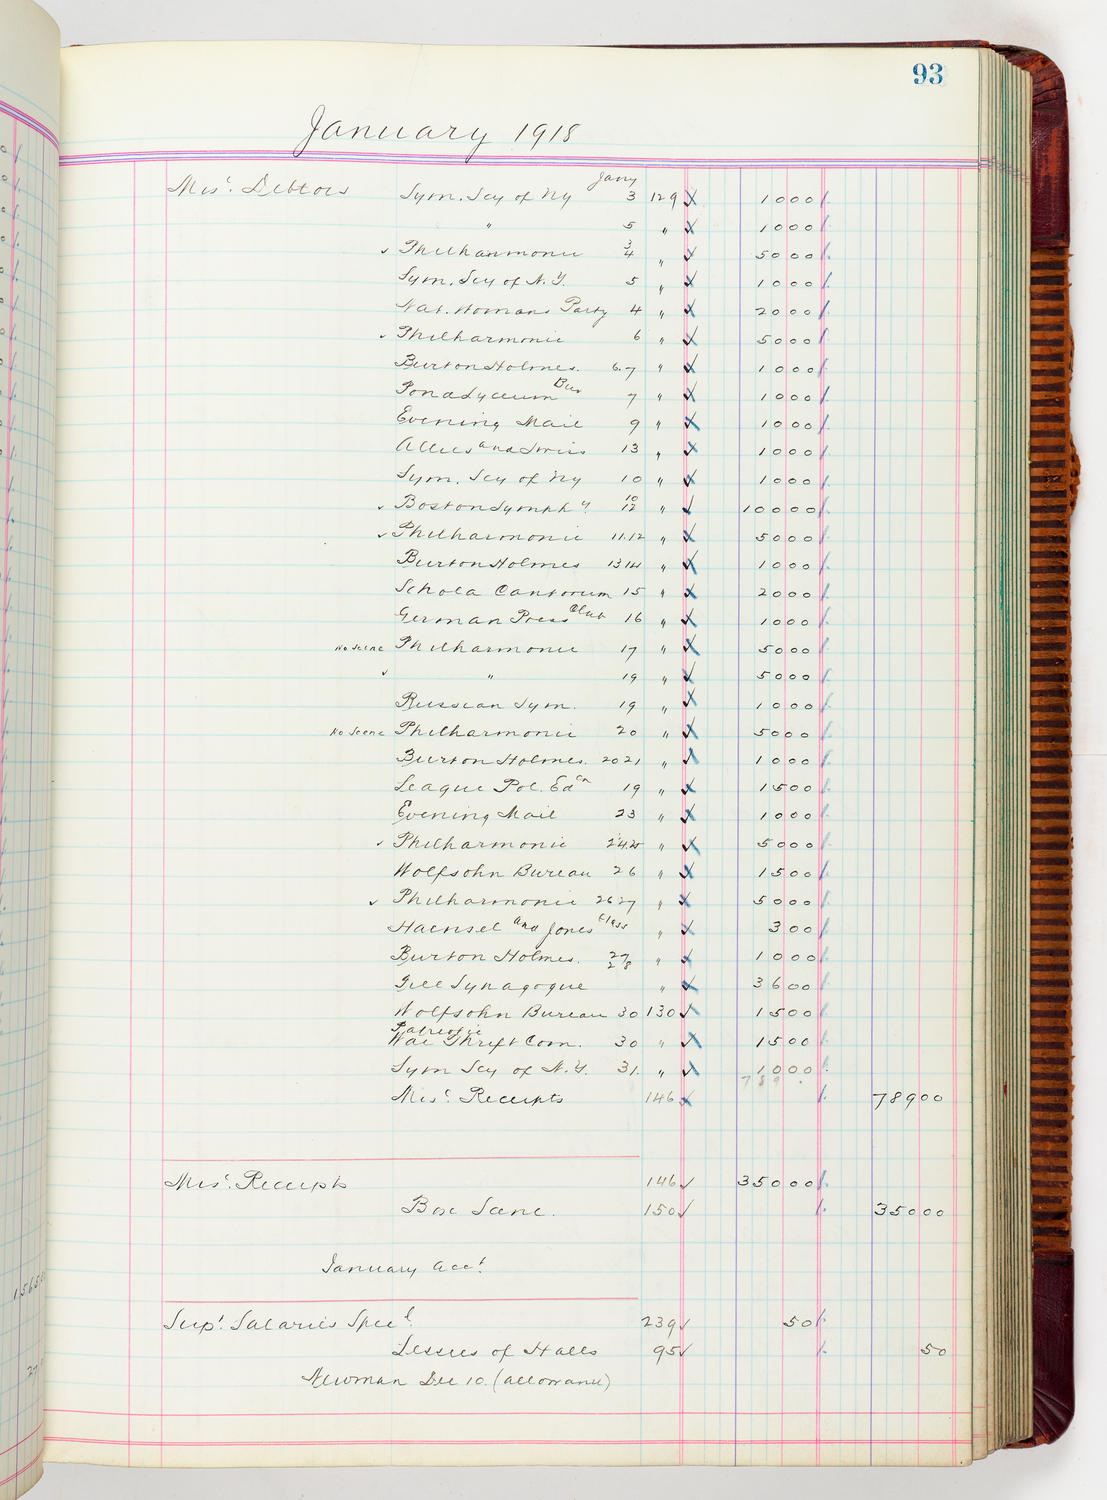 93
January 1918
Misc. Debtors Sym. Scy of Ny Jany 3 129 1000
" 5 " 1000
✓ Philharmonic 3/4 " 5000
Sym. Scy of N.Y. 5 " 1000
Nat. Womans Party 4 " 2000
✓ Philharmonic 6 " 5000
Burton Holmes. 6.7 " 1000
Pond Lyceum Bu 7 " 1000
Evening Mail 9 " 1000
Allies and 13 " 1000
Sym. Scy of Ny 10 " 1000
✓ Boston Symphy 10/12 " 10000
✓ Philharmonic 11.12 " 5000
Burton Holmes 13 14 " 1000
Schola Cantorum 15 " 2000
German Press Club 16 " 1000
No Scene Philharmonic 17 " 5000
✓ " 19 " 5000
Russian Sym. 19 " 1000
No Scene Philharmonic 20 " 5000
Burton Holmes. 20 21 " 1000
League Pol. Edcn 19 " 1500
Evening Mail 23 " 1000
✓ Philharmonic 24.25 " 5000
Wolfsohn Bureau 26 " 1500
✓ Philharmonic 26 27 " 5000
Haensel and Jones Class " 300
Burton Holmes. 27/28 " 1000
Free Synagogue " 3600
Wolfsohn Bureau 30 130 1500
Patriotic
War Thrift Com. 30 " 1500
Sym Scy of N.Y. 31. " 1000
789
Misc. Receipts 146 78900
Misc. Receipts 146 35000
Box Sane. 150 35000
January acct.
Supt. Salaries Specl. 239 50
Lessees of Halls 95 50
Newman Dec 10. (allowance)